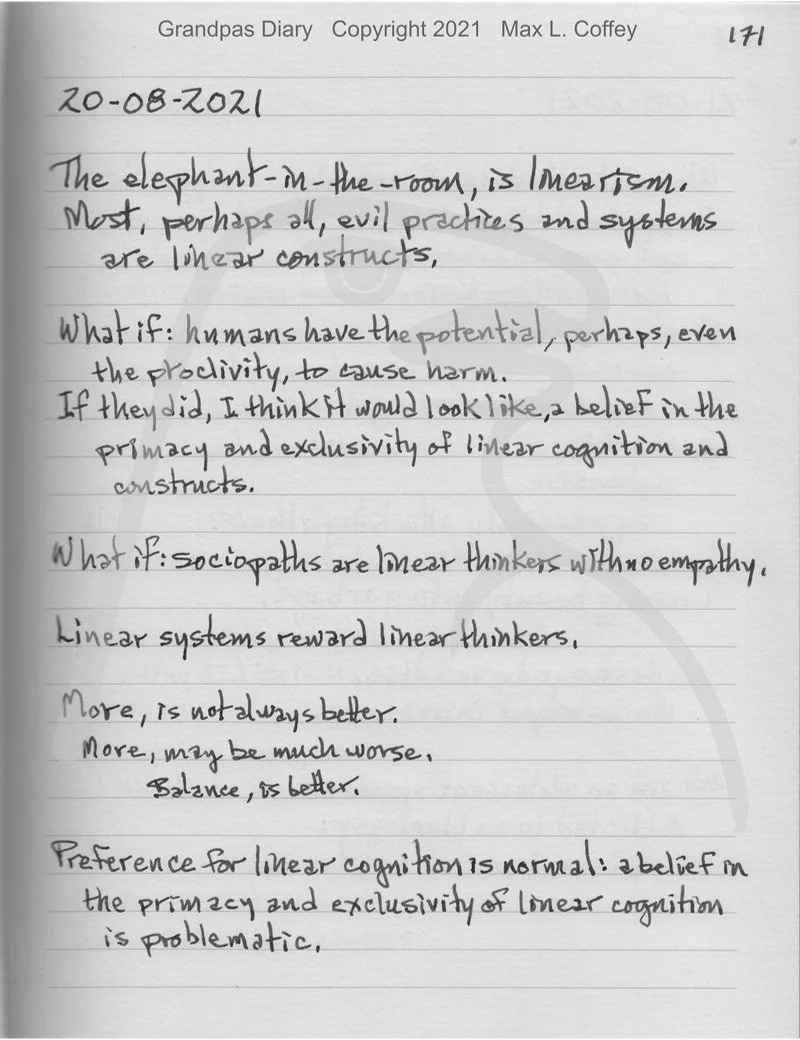 Grandpas Diary Copyright 2021 Max L. Coffey
171
20-08-2021
The elephant-in-the-room, is linearism.
Most, perhaps all, evil practices and systems
are linear constructs,
What if: humans have the potential, perhaps, even
the proclivity, to cause harm.
If they did, I think it would look like, a belief in the
primacy and exclusivity of linear cognition and
constructs.
What if: sociopaths are linear thinkers with no empathy.
Linear systems reward linear thinkers.
More, is not always better.
More, may be much worse.
Balance, is better.
Preference for linear cognition is normal: a belief in
the primacy and exclusivity of linear cognition
is problematic.